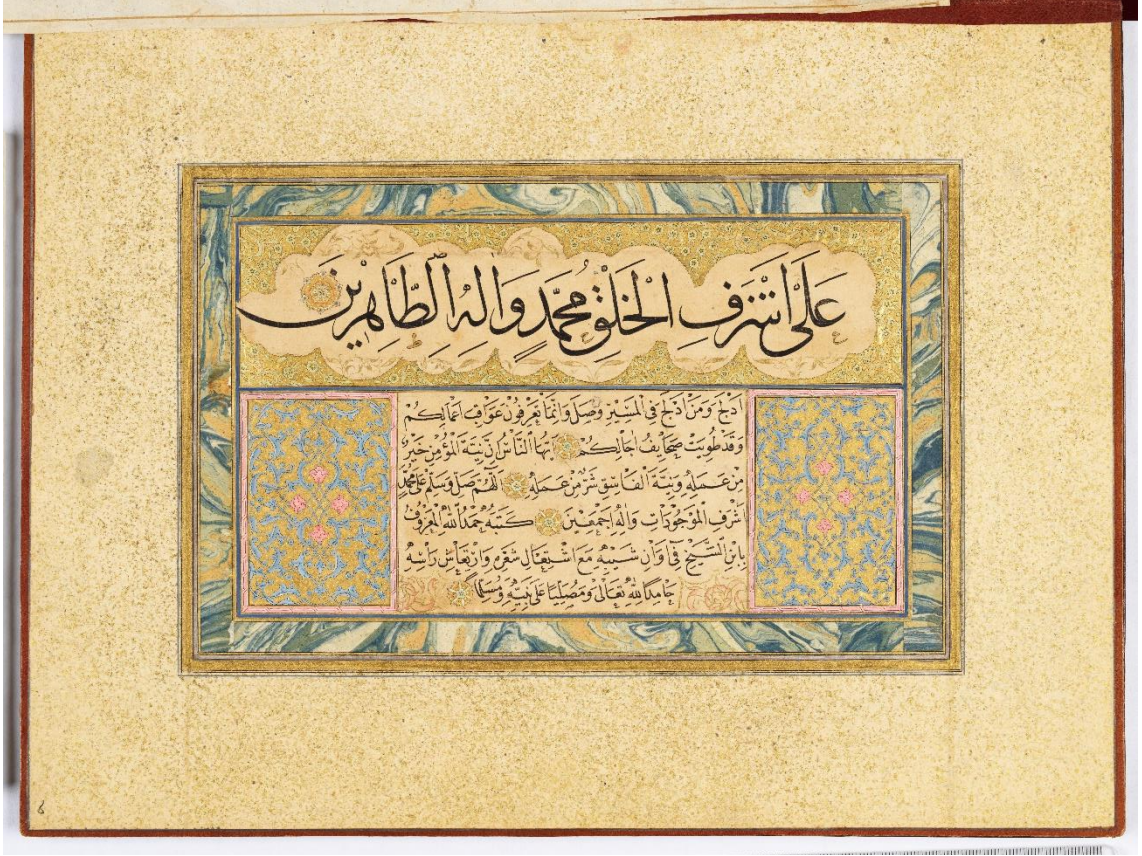 عَلَى اَشْرَفِ الْخَلْقِ مُحَمَّدٍ وَاٰلِهِ الطَّاهِرِينَ
ادلج وَمَنْ اَدْلَجَ فِي الْمَسِيرِ وَصَلَ وَاِنَّمَا تَعْرِفُونَ عَوَاقِبَ اَعْمَالِكُمْ
وَقَدْ طُوِيَتْ صَحَايِفُ اٰجَالِكُمْ يهَا النَّاسُ اِنَّ نِيَّةَ الْمُؤْمِنِ خَيْرٌ
مِنْ عَمَلِهِ وَنِيَّةَ الْفَاسِقِ شَرٌّ مِنْ عَمَلِهِ اَللّٰهُمَّ صَلِّ وَسَلِّمْ عَلَى مُحَمَّدٍ
اَشْرَفِ الْمَوْجُودَاتِ وَاٰلِهِ اَجْمَعِينَ كَتَبَهُ حَمْدُ اللّٰهِ الْمَعْرُوفُ
بِابْنِ الشَّيْخِ فِي اَوَانِ شَيْبِهِ مَعَ اشْتِعَالِ شَعْرِهِ وَارْتِعَاشِ رَاْسِهِ
حَامِدًا لِلّٰهِ تَعَالَى وَمُصَلِّيًا عَلَى نَبِيِّهِ وَمُسَلِّمًا